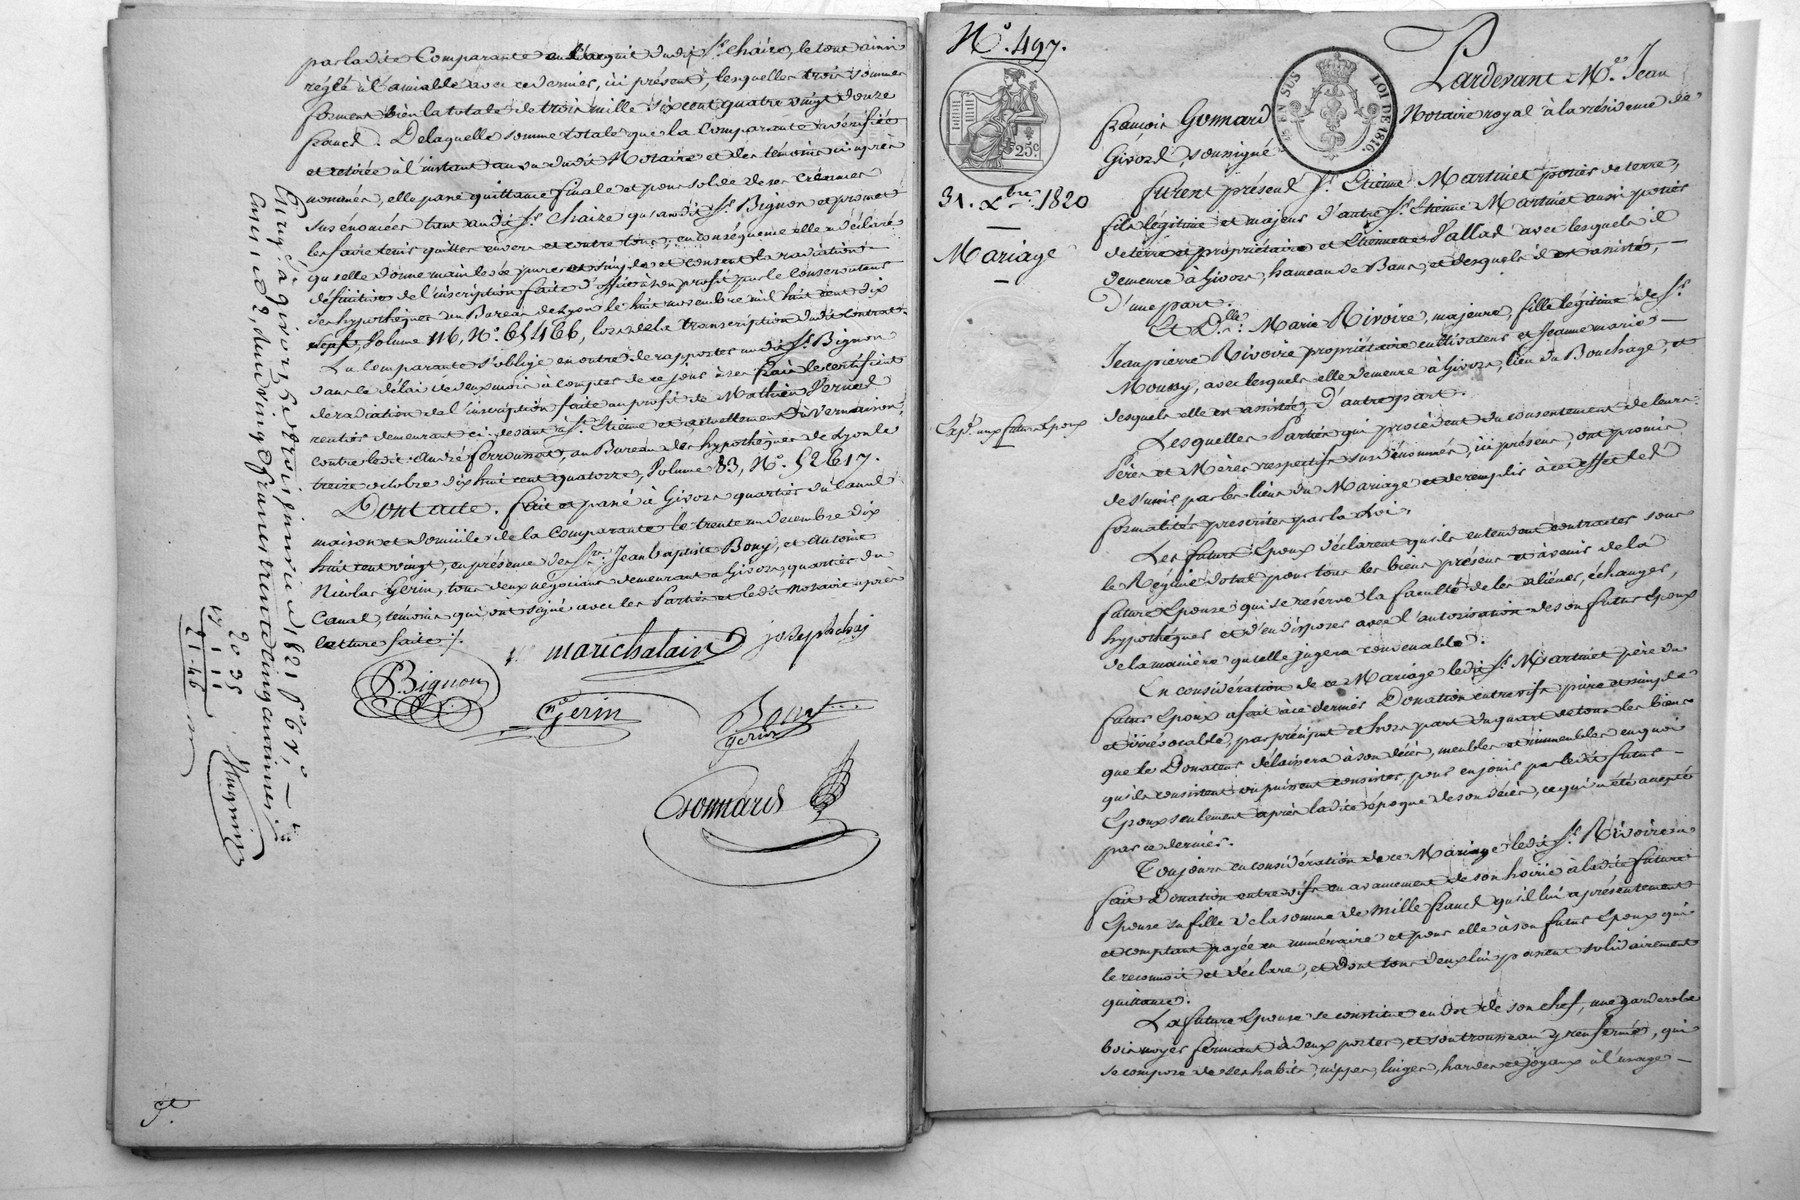 par ladite Comparante en l'acquit dudit Sr. Chaize, le tout ainsi
réglé à l'amiable avec ce dernier, ici présent, lesquelles trois sommes
forment bien la totale de trois mille six cent quatre vingt douze
francs. De laquelle somme totale que la Comparante a vérifiée
et retirée à l'instant au vu dudit Notaire et des témoins ci après
nommés, elle passe quittance finale et pour solde de ses créances
sus énoncées tant audit Sr. Chaize qu'audit Sr. Bignon et promet
les faire tenir quittes envers et contre tous, en conséquence elle a déclaré
qu'elle donne main levée pure et simple et consent la radiation
définitive de l'inscription faite d'office à son profit par le Conservateur
des hypothèques au Bureau de Lyon le huit novembre mil huit cent dix
sept, Volume 116, No. 65466, lors de la transcription dudit Contrat.
La Comparante s'oblige en outre de rapporter audit Sr. Bignon
dans le délai de deux mois à compter de ce jour à ses frais le certificat
de radiation de l'inscription faite au profit de Mathieu
rentier demeurant ci-devant à St. Etienne et actuellement
contre ledit André ferroussat, au Bureau des hypothèques de Lyon le
treize octobre dix huit cent quatorze, Volume 83, No. 52617.
Dont acte. fait et passé à Givors quartier du Canal
maison et domicile de la Comparante le trente un décembre dix
huit cent vingt, en présence des Srs. Jean baptiste Bony, et Antoine
Nicolas Gerin, tous deux négocians demeurant à Givors, quartier du
Canal, témoins qui ont signé avec les Parties et ledit Notaire après
lecture faite ./.
mari chalain
joseph chaiz
P. Bignon
ne Gerin
Bony
gerin
Gonnard
Enreg.é à givors le trois janvier 1821 fo. 61, vo.
Reçu dix huit francs trente cinq centimes
No. 497.
25c.
EN SUS
LOI DE 1816.
31. Xbre. 1820
Mariage
Exp.on aux futurs Epoux
Pardevant Me. Jean
françois Gonnard Notaire royal à la résidence de
Givors, soussigné
furent présens Sr. Etienne Martinet potier de terre,
fils légitime et majeur d'autre Sr. Etienne Martinet aussi potier
de terre et propriétaire et Etiennette Vallas avec lesquels il
demeure à Givors, hameau de Bans, et desquels il est assisté,
D'une part.
Et Dlle. Marie Rivoire, majeure, fille légitime de Sr.
Jean pierre Rivoire propriétaire cultivateur et Jeanne marie
Moussy, avec lesquels elle demeure à Givors, lieu du Bouchage, et
desquels elle est assistée, D'autre part.
Lesquelles Parties qui procèdent du consentement de leurs
Pères et Mères respectifs susdénommés, ici présens, ont promis
de s'unir par les liens du Mariage et de remplir à cet effet les
formalités prescrites par la Loi.
Les futurs Epoux déclarent qu'ils entendent contracter sous
le Régime dotal pour tous les biens présens et à venir de la
future Epouse qui se réserve la faculté de les aliéner, échanger,
hypothéquer et d'en disposer avec l'autorisation de son futur Epoux
de la manière qu'elle jugera convenable.
En considération de ce Mariage ledit Sr. Martinet père du
futur Epoux a fait à ce dernier Donation entre vifs pure et simple
et irrévocable, par préciput et hors part du quart de tous les biens
que le Donateur délaissera à son décès, meubles et immeubles en quoi
qu'ils consistent ou puissent consister, pour en jouir par ledit futur
Epoux seulement après ladite époque de son décès, ce qui a été accepté
par ce dernier.
Toujours en considération de ce Mariage ledit Sr. Rivoire a
fait Donation entre vifs en avancement de son hoirie à ladite future
Epouse sa fille de la somme de Mille francs qu'il lui a présentement
et comptant payée en numéraire et pour elle à son futur Epoux qui
le reconnoit et déclare, et dont tous deux lui passent solidairement
quittance.
La future Epouse se constitue en dot de son chef, une garderobe
bois noyer fermant à deux portes, et son trousseau y renfermé, qui
se compose de ses habits, nippes, linges, hardes et joyaux à l'usage